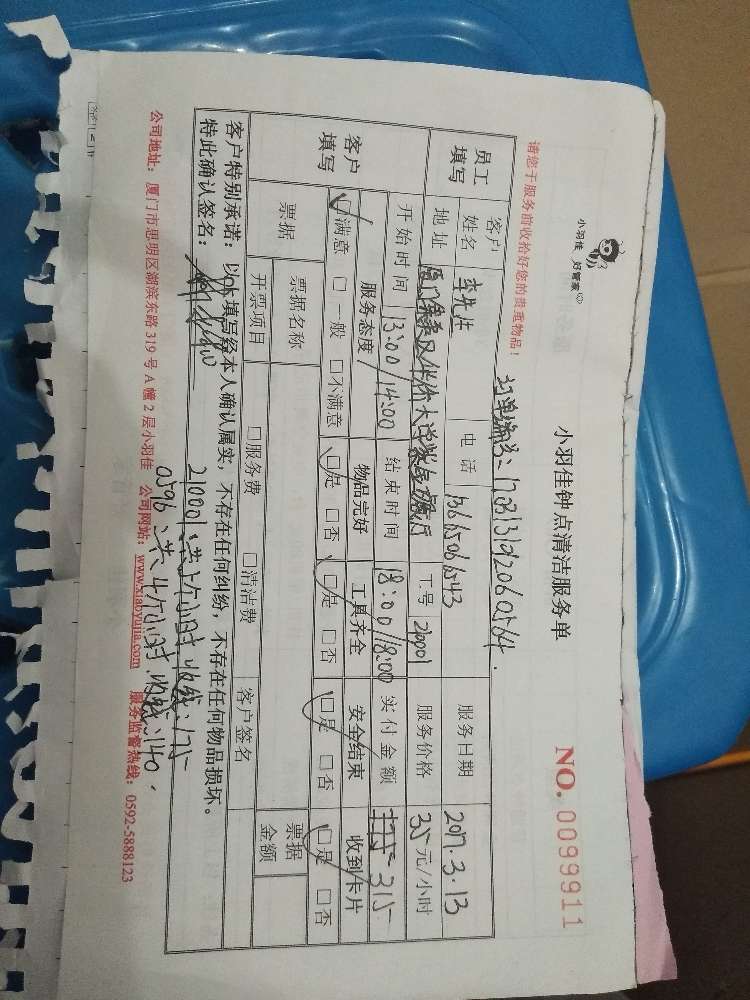 小羽佳 好管家
小羽佳钟点清洁服务单
NO. 0099911
请您于服务前收拾好您的贵重物品!
订单编号:170313192060564.
员工填写 客户姓名 李先生 电话 13665061543 服务日期 2017.3.13
地址 厦门集美区华侨大学 工号 210001 服务价格 35元/小时
客户填写 开始时间 13:00/14:00 结束时间 18:00/18:00 实付金额 175 315
服务态度 物品完好 工具齐全 安全结束 收到卡片
☑满意 □一般 □不满意 ☑是 □否 ☑是 □否 ☑是 □否 ☑是 □否
票据 票据名称 票据金额
开票项目 □服务费 □清洁费 客户签名
客户特别承诺:以上填写经本人确认属实,不存在任何纠纷,不存在任何物品损坏。
特此确认签名:
210001:共5个小时 收钱:175
0596:共4个小时,收钱:140.
公司地址:厦门市思明区湖滨东路319号A幢2层小羽佳 公司网站:www.xiaoyujia.com 服务监督热线:0592-5888123